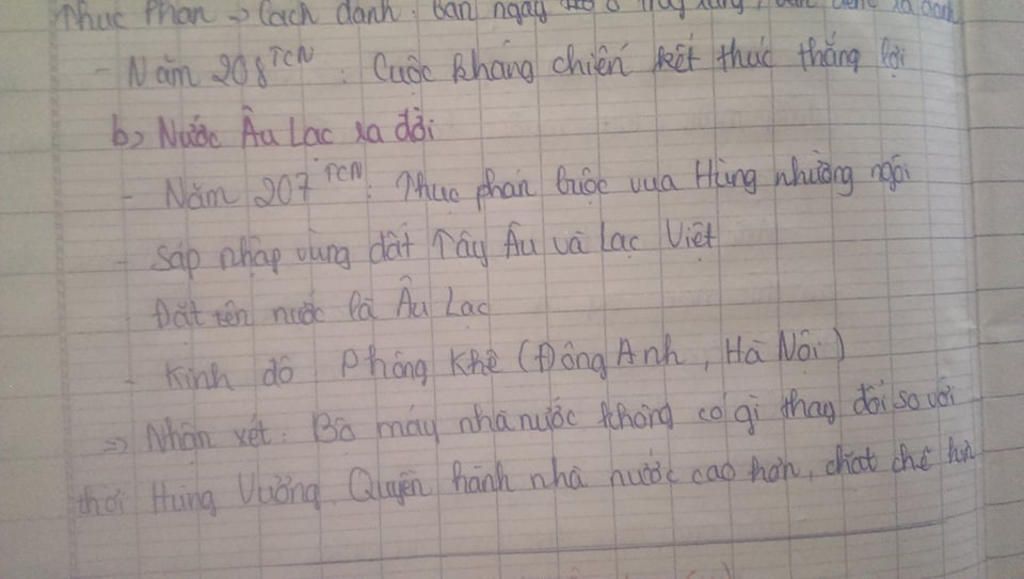 Thục Phán => Cách đánh: ban ngày ở rừng,
- Năm 208 TCN: Cuộc kháng chiến kết thúc thắng lợi
b) Nước Âu Lạc ra đời
- Năm 207 TCN: Thục phán buộc vua Hùng nhường ngôi
- Sáp nhập vùng đất Tây Âu và Lạc Việt
Đặt tên nước là Âu Lạc
- Kinh đô Phong Khê (Đông Anh, Hà Nội)
=> Nhận xét: Bộ máy nhà nước không có gì thay đổi so với
thời Hùng Vương Quyền hành nhà nước cao hơn, chặt chẽ hơn